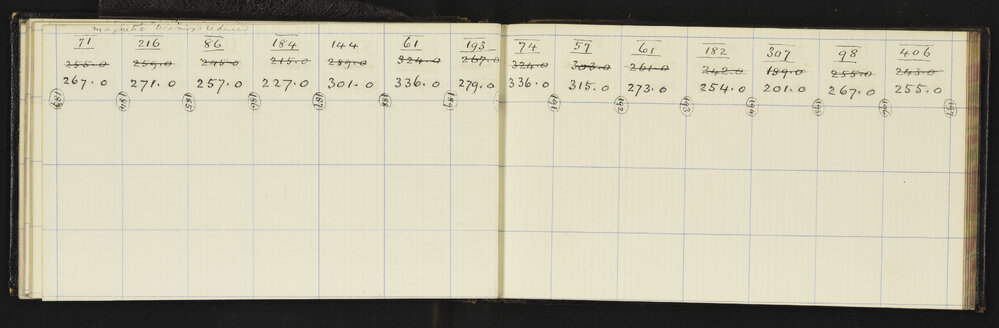 magnetic bearings reduced
71 216 86 184 144 61 193 74 57 61 182 307 98 406
255.0 259.0 245.0 215.0 289.0 324.0 267.0 324.0 303.0 261.0 242.0 189.0 255.0 243.0
267.0 271.0 257.0 227.0 301.0 336.0 279.0 336.0 315.0 273.0 254.0 201.0 267.0 255.0
183 184 185 186 187 188 189 191 192 193 194 195 196 197